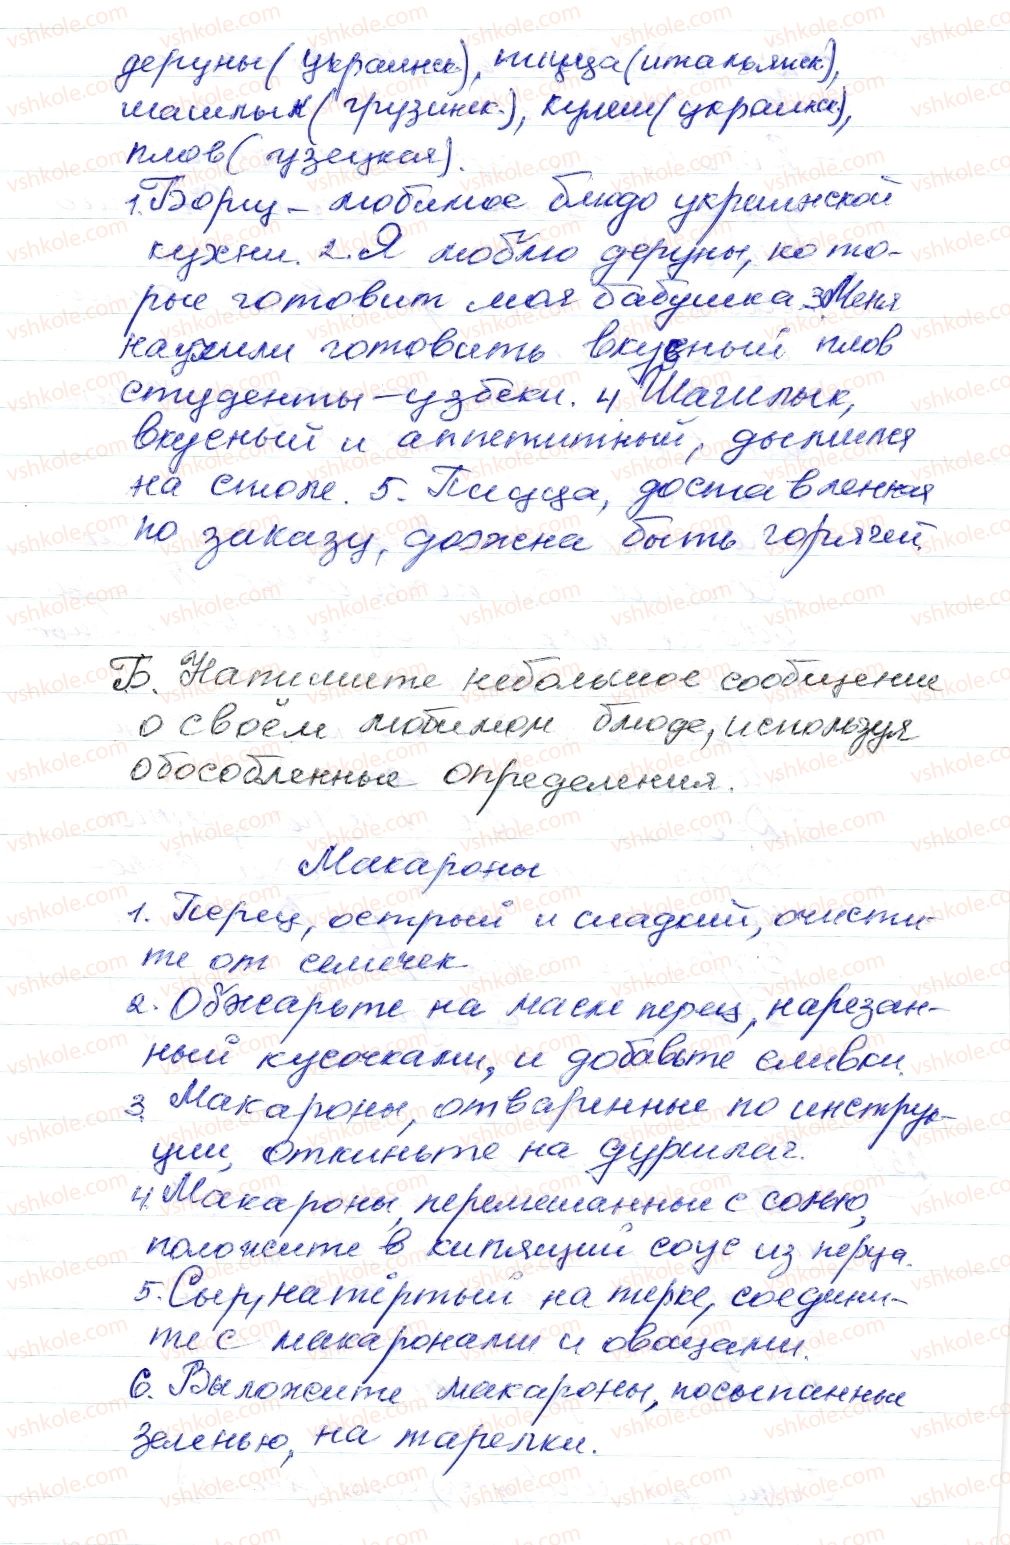 деруны (украинск), пицца (итальянск),
шашлык (грузинск.), кулеш (украинск),
плов (узецкая).
1. Борщ – любимое блюдо украинской
кухни. 2. Я люблю деруны, кото-
рые готовит моя бабушка 3. Меня
научили готовить вкусный плов
студенты – узбеки. 4 Шашлык,
вкусный и аппетитный, дымился
на столе. 5. Пицца, доставленная
по заказу, должна быть горячей.
Б. Напишите небольшое сообщение
о своём любимом блюде, используя
обособленные определения.
Макароны
1. Перец, острый и сладкий, очисти-
те от семечек
2. Обжарьте на масле перец, нарезан-
ный кусочками, и добавьте сливки.
3. Макароны, отваренные по инструк-
ции, откиньте на друшлаг.
4. Макароны, перемешанные с солью,
положите в кипящий соус из перца.
5. Сыр, натёртый на терке, соедини-
те с макаронами и овощами.
6. Выложите макароны, посыпанные
зеленью, на тарелки.